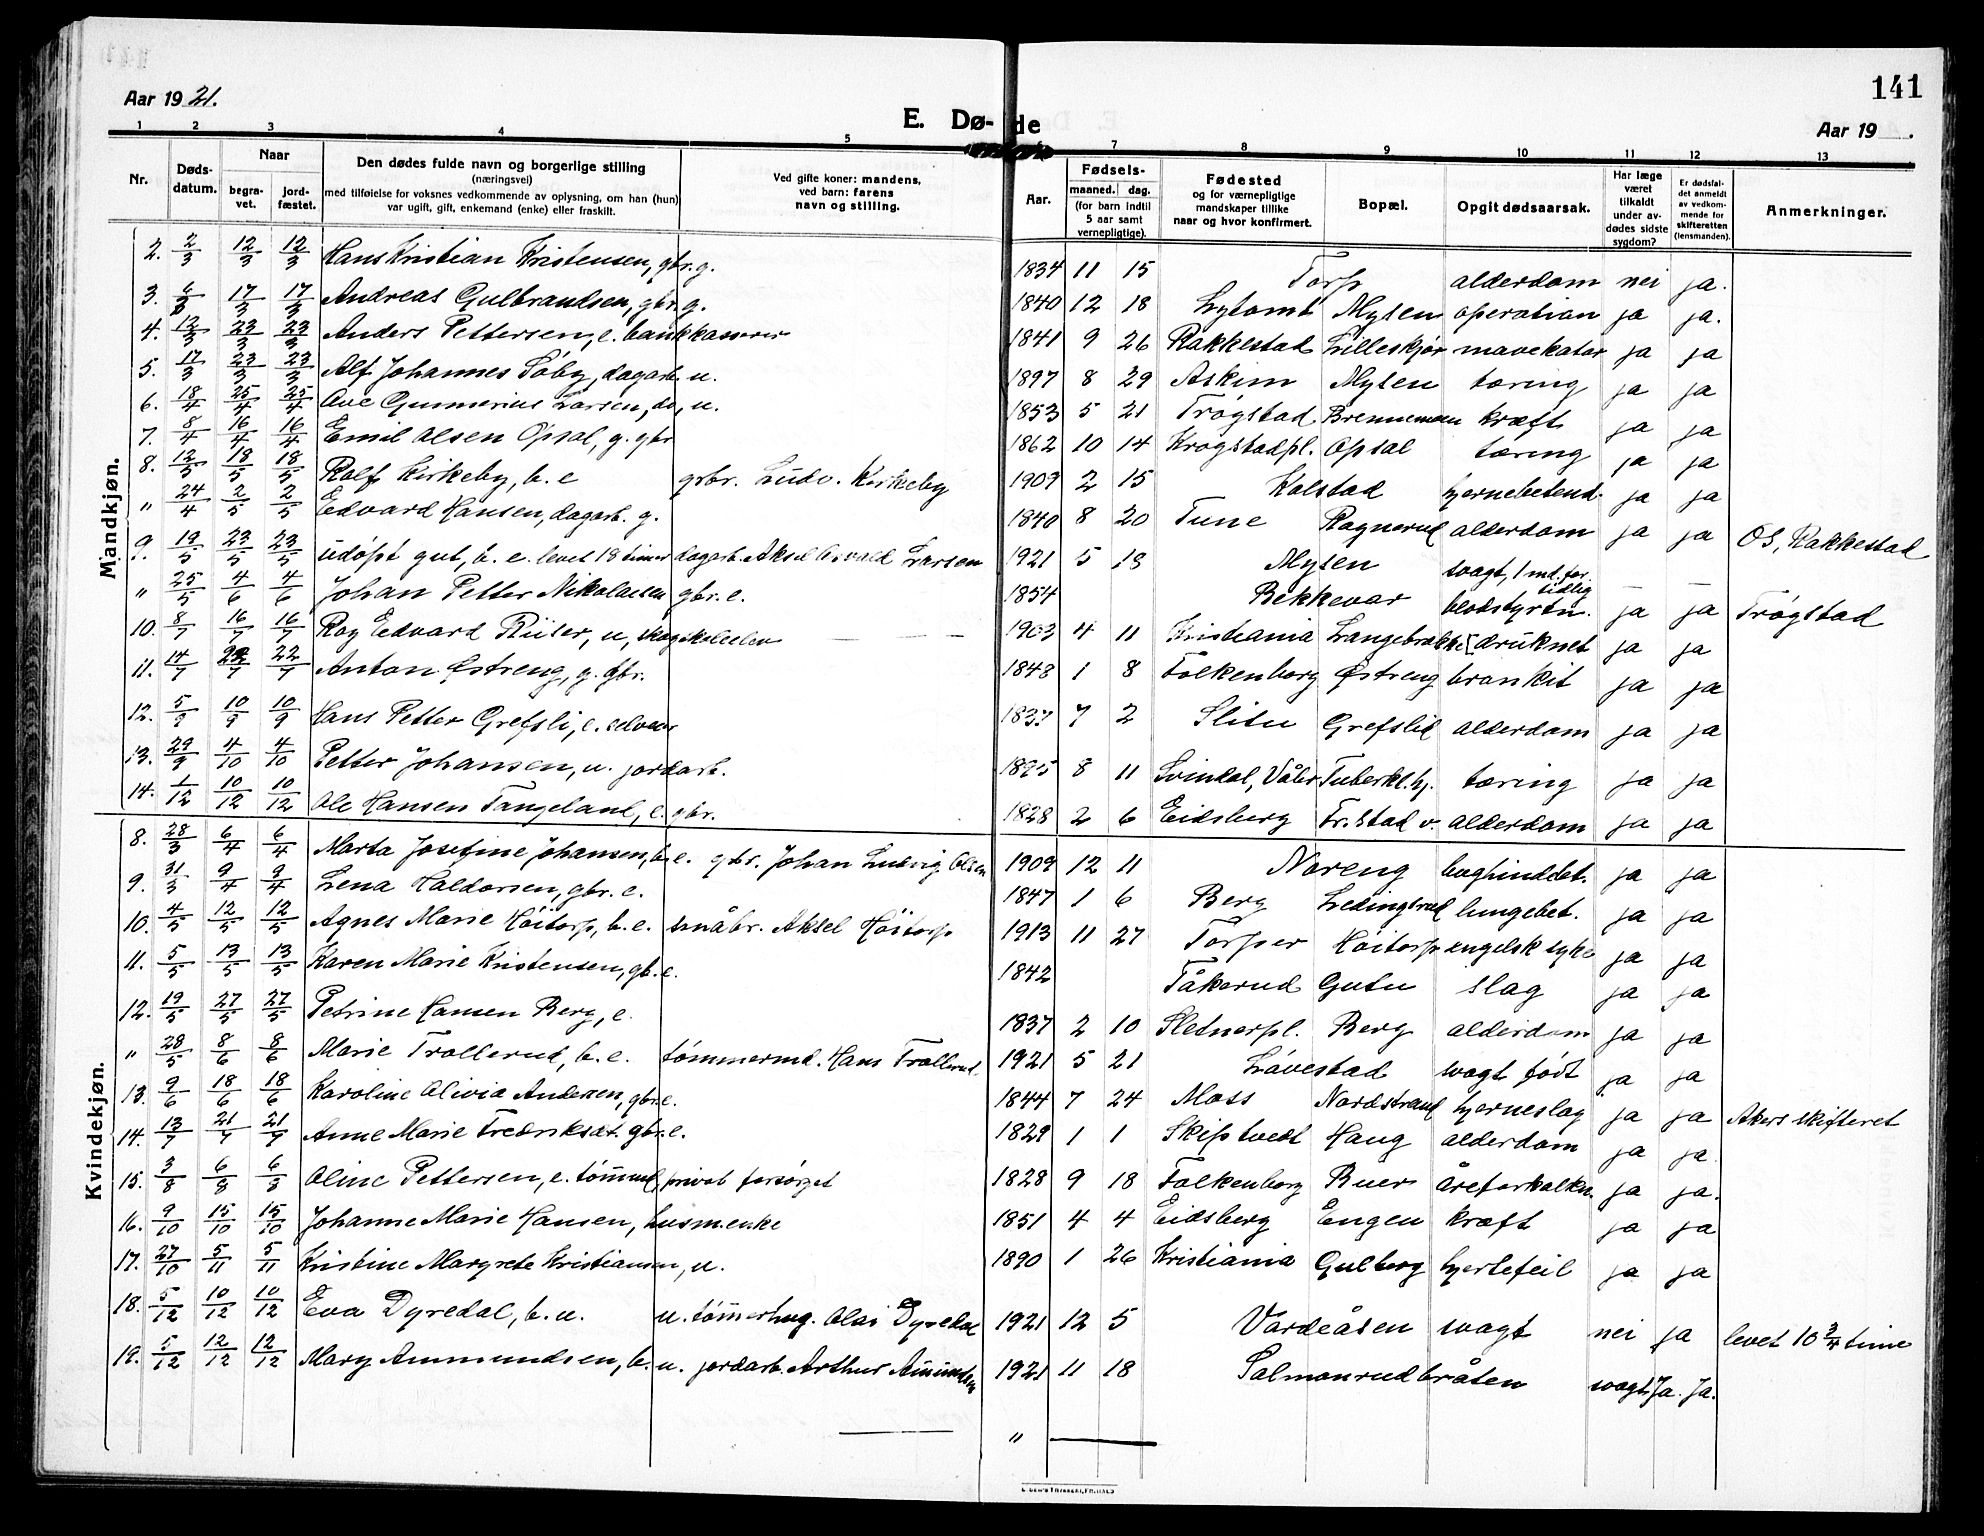 141
Aar 19 21.
E. Dø- de
Aar 19 .
1 2 3 4 5 7 8 9 10 11 12 13
Nr. Døds-datum. Naar begra-vet. jord-fæstet. Den dødes fulde navn og borgerlige stilling (næringsvei) med tilføielse for voksnes vedkommende av oplysning, om han (hun) var ugift, gift, enkemand (enke) eller fraskilt. Ved gifte koner: mandens, ved barn: farens navn og stilling. Aar. Fødsels- maaned. dag. (for barn indtil 5 aar samt vernepligtige). Fødested og for værnepligtige mandskaper tillike naar og hvor konfirmert. Bopæl. Opgit dødsaarsak. Har læge været tilkaldt under av-dødes sidste sygdom? Er dødsfal-det anmeldt av vedkom-mende for skifteretten (lensmanden). Anmerkninger.
Mandkjøn.
2. 2/3 12/3 12/3 Hans Kristian Kristensen, gbr. g. 1834 11 15 Torp alderdom nei ja.
3. 6/3 17/3 17/3 Andreas Gulbrandsen, gbr. g. 1840 12 18 Lytomt Mysen operation ja ja.
4. 12/3 23/3 23/3 Anders Pettersen, e. bankkasserer 1841 9 26 Rakkestad Lilleskjør mavekatar ja ja
5. 17/3 23/3 23/3 Alf Johannes Søby, dagarb. u. 1897 8 29 Askim Mysen tæring ja ja
6. 18/4 25/4 25/4 Ove Gunnerius Larsen, do, u. 1853 5 21 Trøgstad Brennemoen kræft ja ja
7. 8/4 16/4 16/4 Emil Olsen Opsal, g. gbr 1862 10 14 Krogstadpl. Opsal tæring ja ja
8. 12/5 18/5 18/5 Rolf Kirkeby, b. e grbr. Ludv. Kirkeby 1909 2 15 Kolstad hjernebetend. ja ja
" 24/4 2/5 2/5 Edvard Hansen, dagarb. g. 1840 8 20 Tune Ragnerud alderdom ja ja Os, Rakkestad
9. 19/5 23/5 23/5 udøpt gut, b. e. levet 18 timer dagarb. Aksel Osvald Larsen 1921 5 18 Mysen svagt, 1 md. for tidlig — —
" 25/5 4/6 4/6 Johan Petter Nikolaisen gbr. e. 1854 Bekkevar blodstyrtn. ja ja Trøgstad
10. 8/7 16/7 16/7 Roy Edvard Riiser, u, skogskoleelev — — 1903 4 11 Kristiania Langebrække [druknet ja ja
11. 14/7 22/7 22/7 Anton Østreng, g. gbr. 1848 1 8 Folkenborg Østreng bronkit ja ja
12. 5/9 10/9 10/9 Hans Petter Grefsli, e. selveier 1837 7 2 Slitu Grefslid alderdom ja ja
13. 29/9 4/10 4/10 Petter Johansen, u. jordarb. 1895 8 11 Svindal, Våler Tuberkl.hj. tæring ja ja
14. 1/12 10/12 10/12 Ole Hansen Tangeland, e. gbr. 1828 2 6 Eidsberg Fr.stad v. alderdom ja ja
Kvindekjøn.
8. 28/3 6/4 6/4 Marta Josefine Johansen, b. e. gbr. Johan Ludvig Olsen 1909 12 11 Noreng bughindebet. ja ja
9. 31/3 9/4 9/4 Lena Haldorsen, gbr. e. 1847 1 6 Berg Ledingsrud lungebet. ja ja
10. 4/5 12/5 12/5 Agnes Marie Høitorp, b. e. småbr. Aksel Høitorp 1913 11 27 Torper Høitorp engelsk syke ja ja
11. 5/5 13/5 13/5 Karen Marie Kristensen, gb. e. 1842 Tåkerud Gutu slag ja ja
12. 19/5 27/5 27/5 Petrine Hansen Berg, e. 1837 2 10 Sletnerpl. Berg alderdom ja ja
" 28/5 8/6 8/6 Marie Trollerud, b. e. tømmermd. Hans Trollerud 1921 5 21 Løvestad svagt født ja ja
13. 9/6 18/6 18/6 Karoline Olivia Andersen, gbr. e. 1844 7 24 Moss Nordstrand hjerneslag ja ja Akers skifteret
14. 13/7 21/7 21/7 Anne Marie Fredriksdt. gbr. e. 1829 1 1 Skiptvedt Haug alderdom ja ja
15. 3/8 6/8 6/8 Oline Pettersen, e. tømmd, privat forsørget 1828 9 18 Folkenborg Buer åreforkalkn. ja ja.
16. 9/10 15/10 15/10 Johanne Marie Hansen, husm.enke 1851 4 4 Eidsberg Engen kræft ja ja
17. 27/10 5/11 5/11 Kristine Margrete Kristiansen, u. 1890 1 26 Kristiania Gulberg hjertefeil ja ja
18. 5/12 10/12 10/12 Eva Dyredal, b. u. u. tømmerhug. Olai Dyredal 1921 12 5 Vardeåsen svagt nei ja levet 10 3/4 time
19. 5/12 12/12 12/12 Mary Ammundsen, b. u. jordarb. Arthur Amundsen 1921 11 18 Salmonrudbråten svagt Ja. Ja.
"